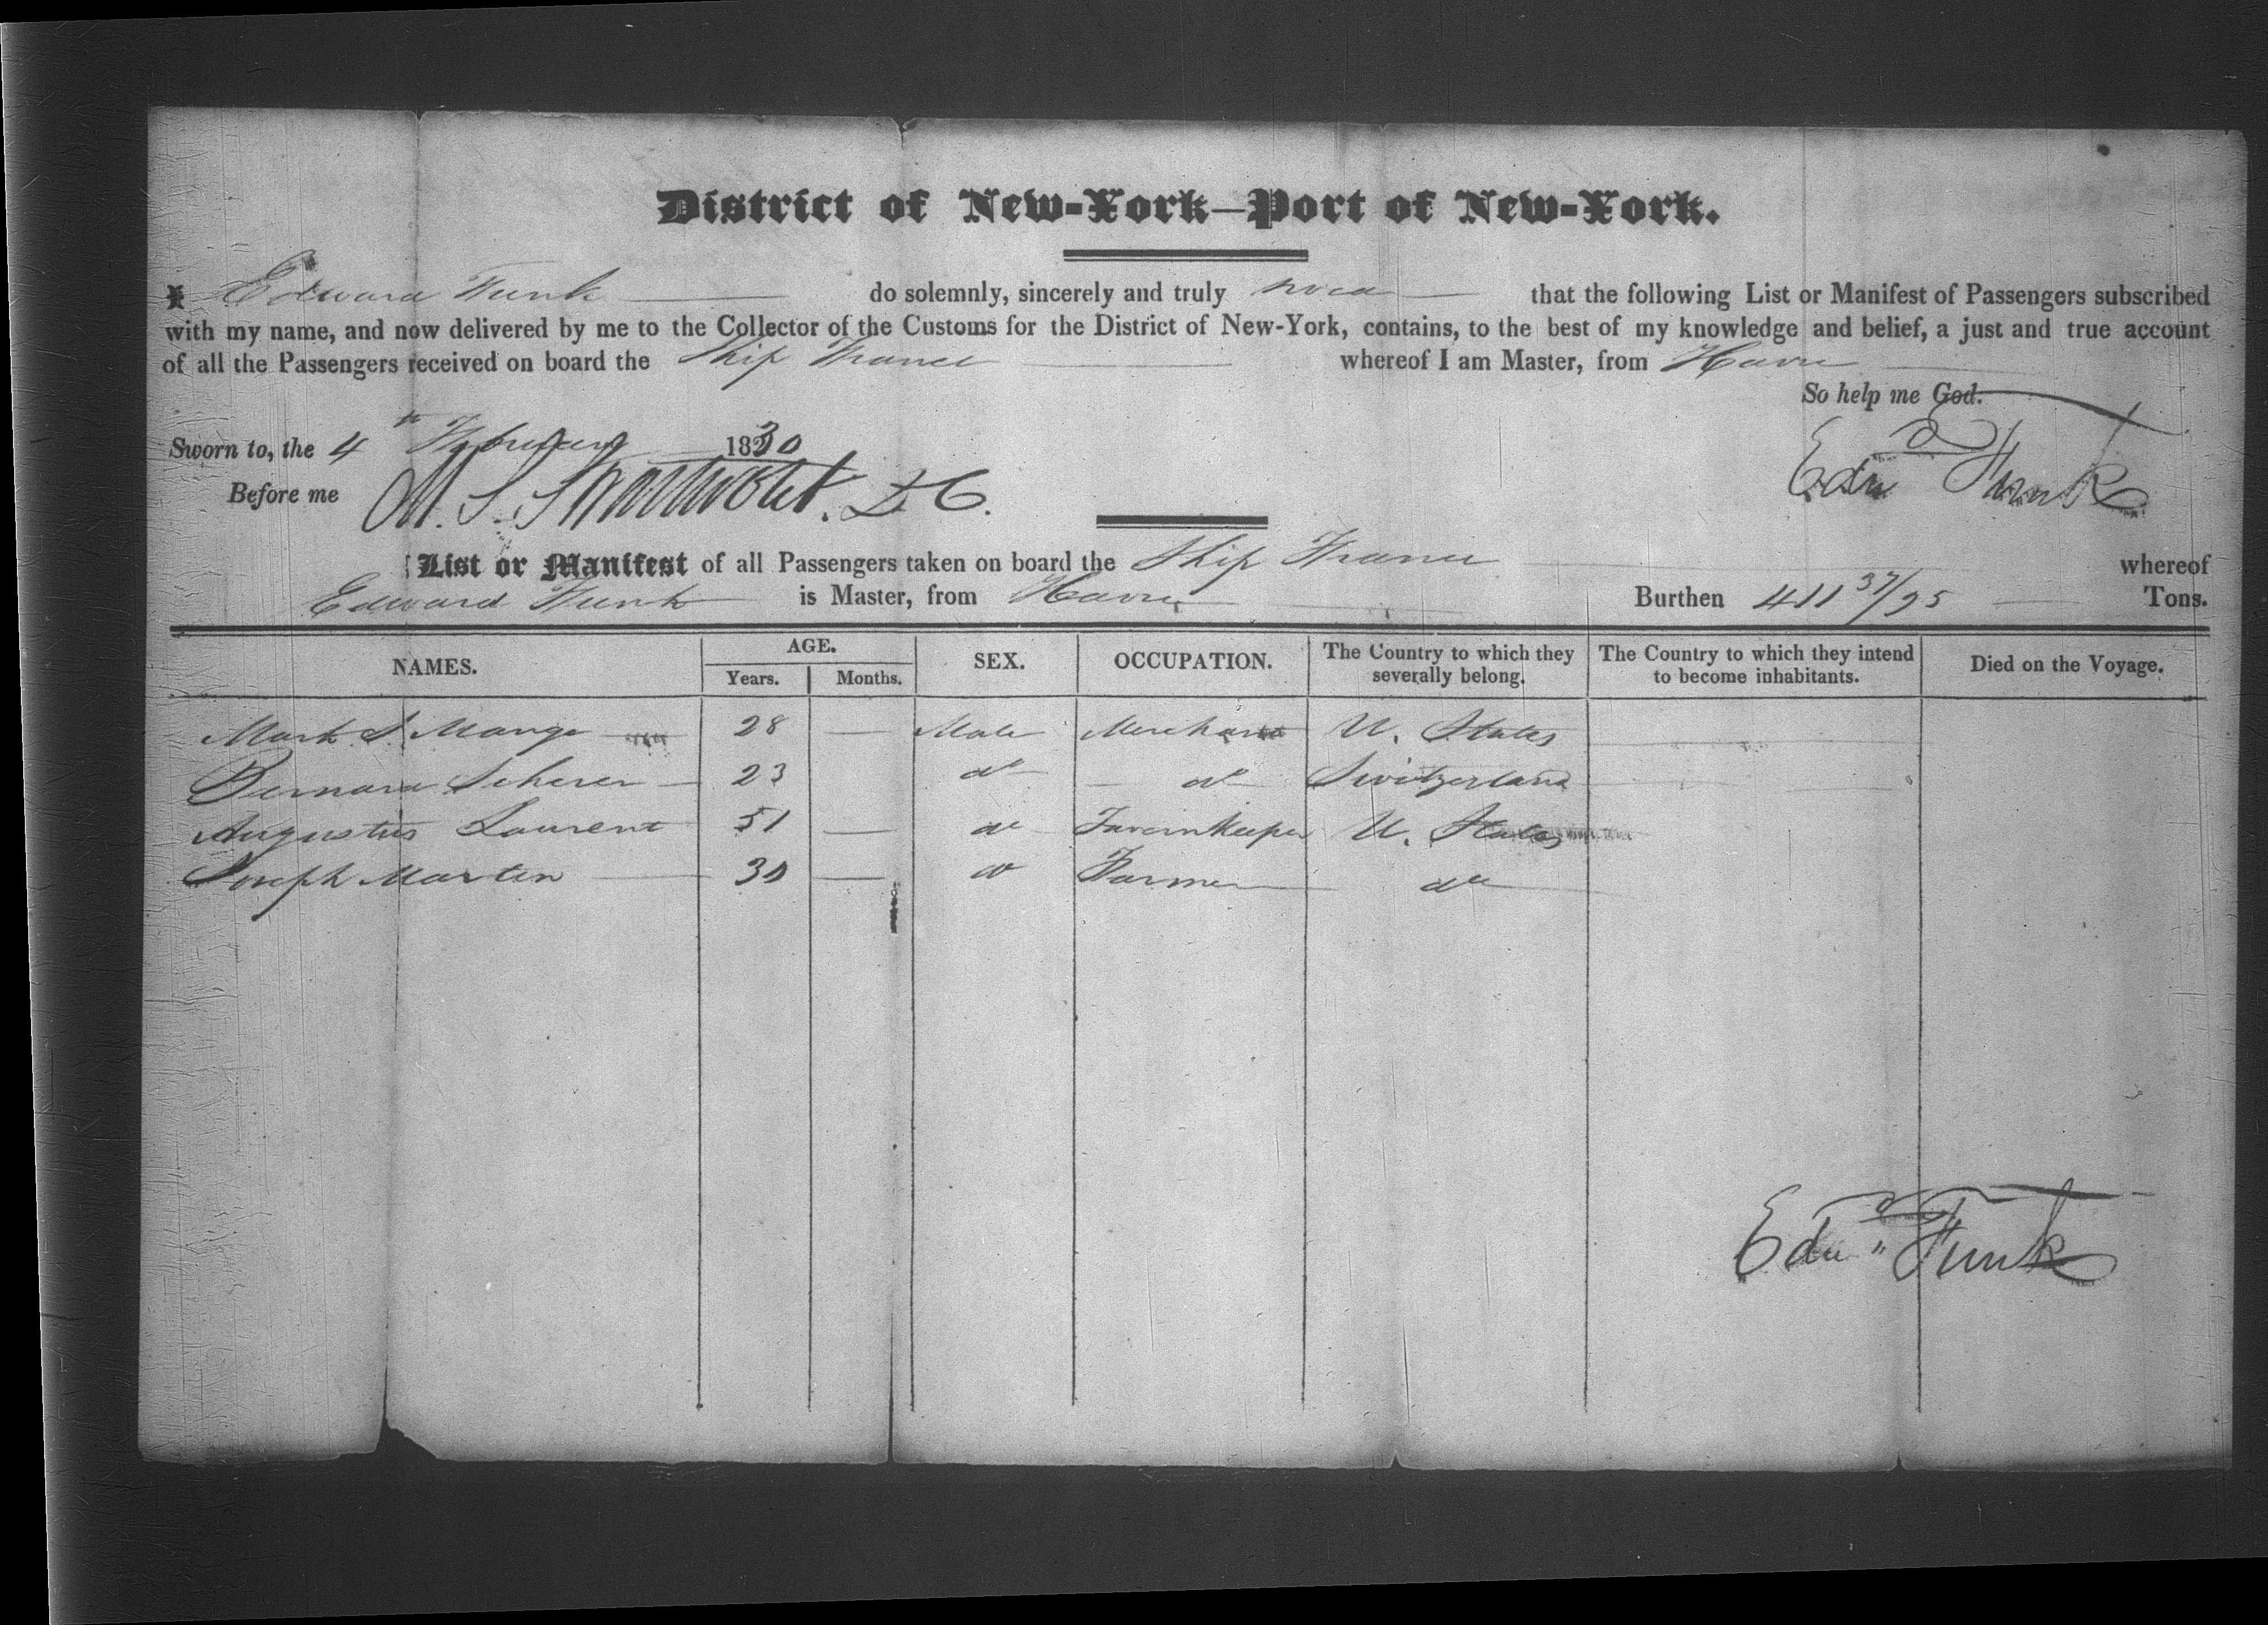 District of New-York—Port of New-York.
I Edward Funk do solemnly, sincerely and truly that the following List or Manifest of Passengers subscribed
with my name, and now delivered by me to the Collector of the Customs for the District of New-York, contains, to the best of my knowledge and belief, a just and true account
of all the Passengers received on board the Ship France whereof I am Master, from Havre
So help me God.
Sworn to, the 4th February 1830
Edwd Funk
Before me M. S. Swartwout. D C.
List or Manifest of all Passengers taken on board the Ship France whereof
Edward Funk is Master, from Havre Burthen 411 37/95 Tons.
NAMES. AGE. Years. Months. SEX. OCCUPATION. The Country to which they severally belong. The Country to which they intend to become inhabitants. Died on the Voyage.
Mark S. Mange 28 — Male Merchant U. States
Bernard Scherer 23 do do Switzerland
Augustus Laurent 51 — do Tavernkeeper U. States
Joseph Martin — do Farmer do
Edwd Funk